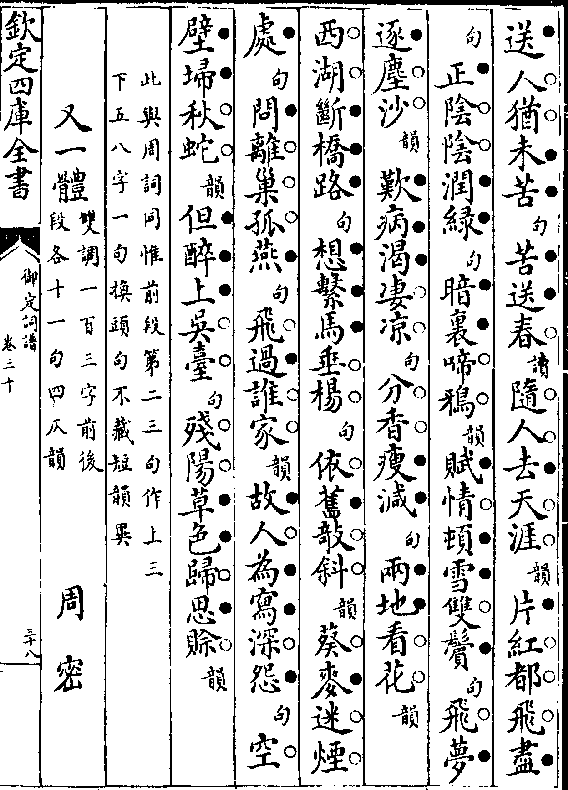 送人猶未苦句苦送春讀隨人去天涯韻片紅都飛盡
句正陰陰潤綠句暗裏啼鴉韻賦情頓雪雙鬢句飛夢
逐塵沙韻歎病渴凄涼句分香瘦減句兩地看花韻
西湖斷橋路句想繫馬垂楊句依舊敧斜韻葵麥迷煙
處句問離巢孤燕句飛過誰家韻故人為寫深怨句空
壁埽秋蛇韻但醉上吳臺句殘陽草色歸思賒韻
此與周詞同惟前段第二三句作上三
下五八字一句換頭句不藏短韻異
又一體雙調一百三字前後
段各十一句四仄韻
周密
欽定四庫全書
御定詞譜
卷三十
三十八